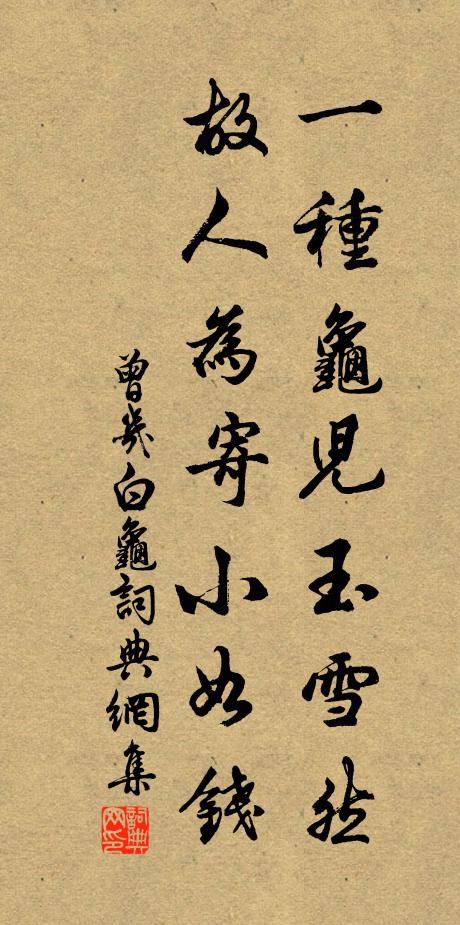 一種龜兒玉雪然
故人為寄小如錢
曾幾白龜詞典網集
詞典网印